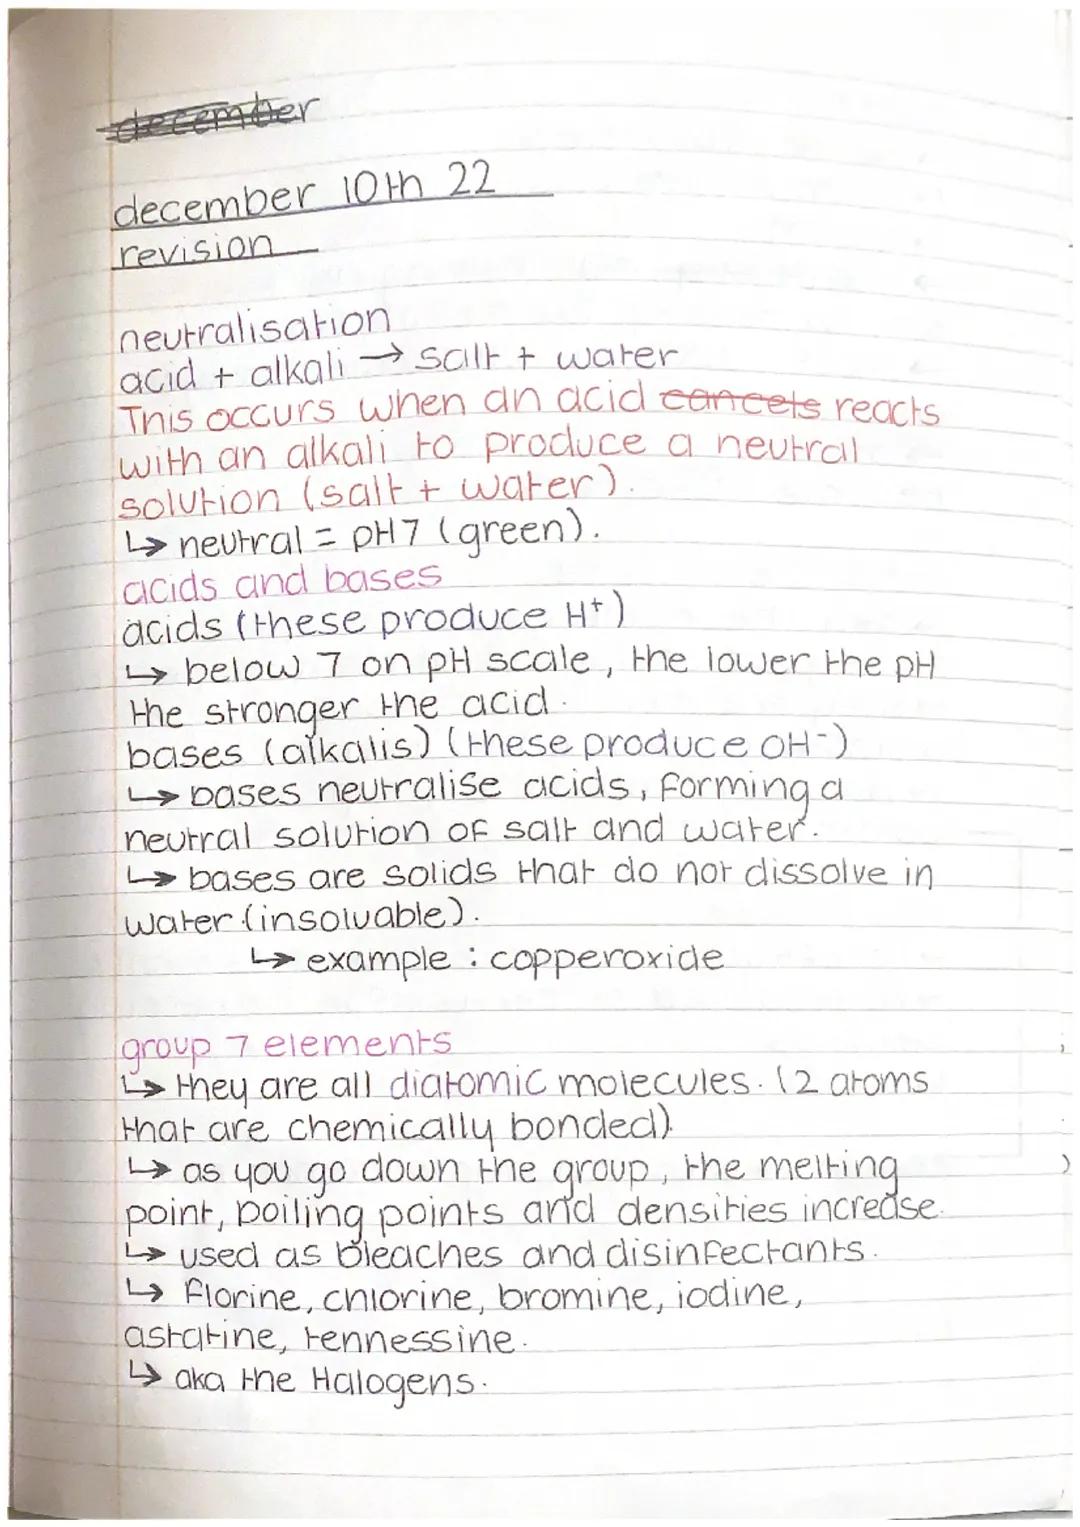 december
december 10th 22
revision
neutralisation
acid + alkali → salt + water
This occurs when an acid cancels reacts
with an alkali to produce a neutral
solution (salt + water).
↳ neutral = pH7 (green).
acids and bases
acids (these produce H⁺)
↳ below 7 on pH scale, the lower the pH
the stronger the acid.
bases (alkalis) (these produce OH⁻)
↳ bases neutralise acids, forming a
neutral solution of salt and water.
↳ bases are solids that do not dissolve in
water (insoluable).
↳ example : copperoxide
group 7 elements
↳ they are all diatomic molecules. (2 atoms
that are chemically bonded).
↳ as you go down the group, the melting
point, boiling points and densities increase.
↳ used as bleaches and disinfectants.
↳ florine, chlorine, bromine, iodine,
astatine, tennessine.
↳ aka the Halogens.